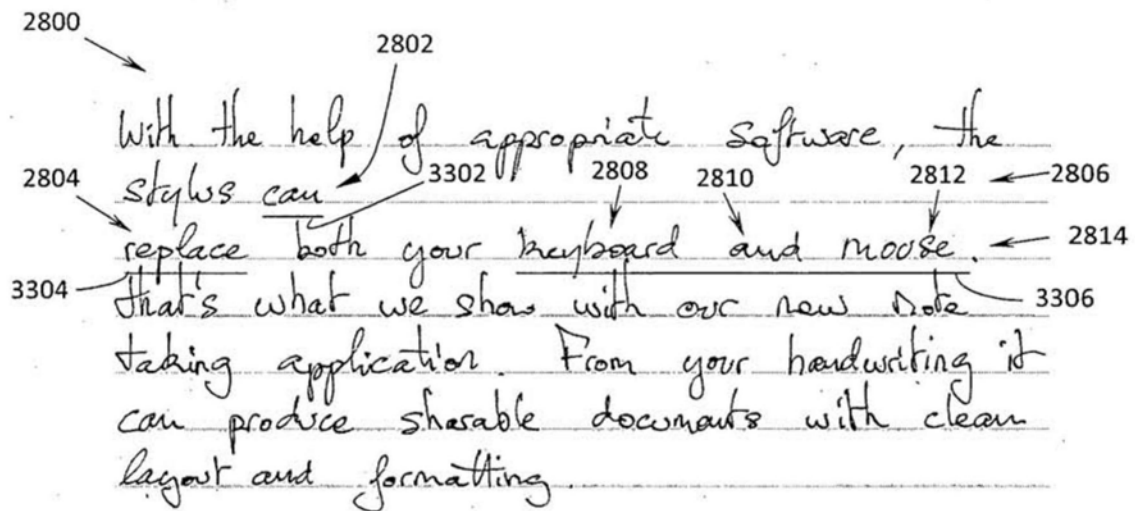 2800
2802
With the help of appropriate software, the
2804 3302 2808 2810 2812 2806
stylus can
replace both your keyboard and mouse. 2814
3304 3306
that's what we show with our new note
taking application. From your handwriting it
can produce sharable documents with clean
layout and formatting.